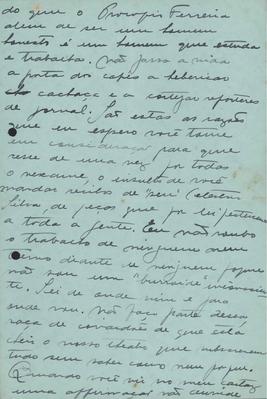 do que o Procopio Ferreira
alem de ser um homem
honesto é um homem que estuda
e trabalha. Não passa a vida
a porta dos cafés a bebericar
cachaça e a cortejar reporteres
de jornal. São estas as razões
que eu espero você tome
em consideração para que
cesse de uma vez por todas
o vexame, o insulto de você
mandar recibo de "seu"
de peças que por lei pertencem
a toda a gente. Eu não roubo
o trabalho de ninguem nem
tremo diante de ninguem porque
não sou um
te. Sei de onde vim e para
onde vou. Não faço parte dessa
raça de covardões de que está
cheio o nosso theatro que
tudo sem saber como nem porque.
Quando você vir no meu cartaz
uma affirmação não duvide